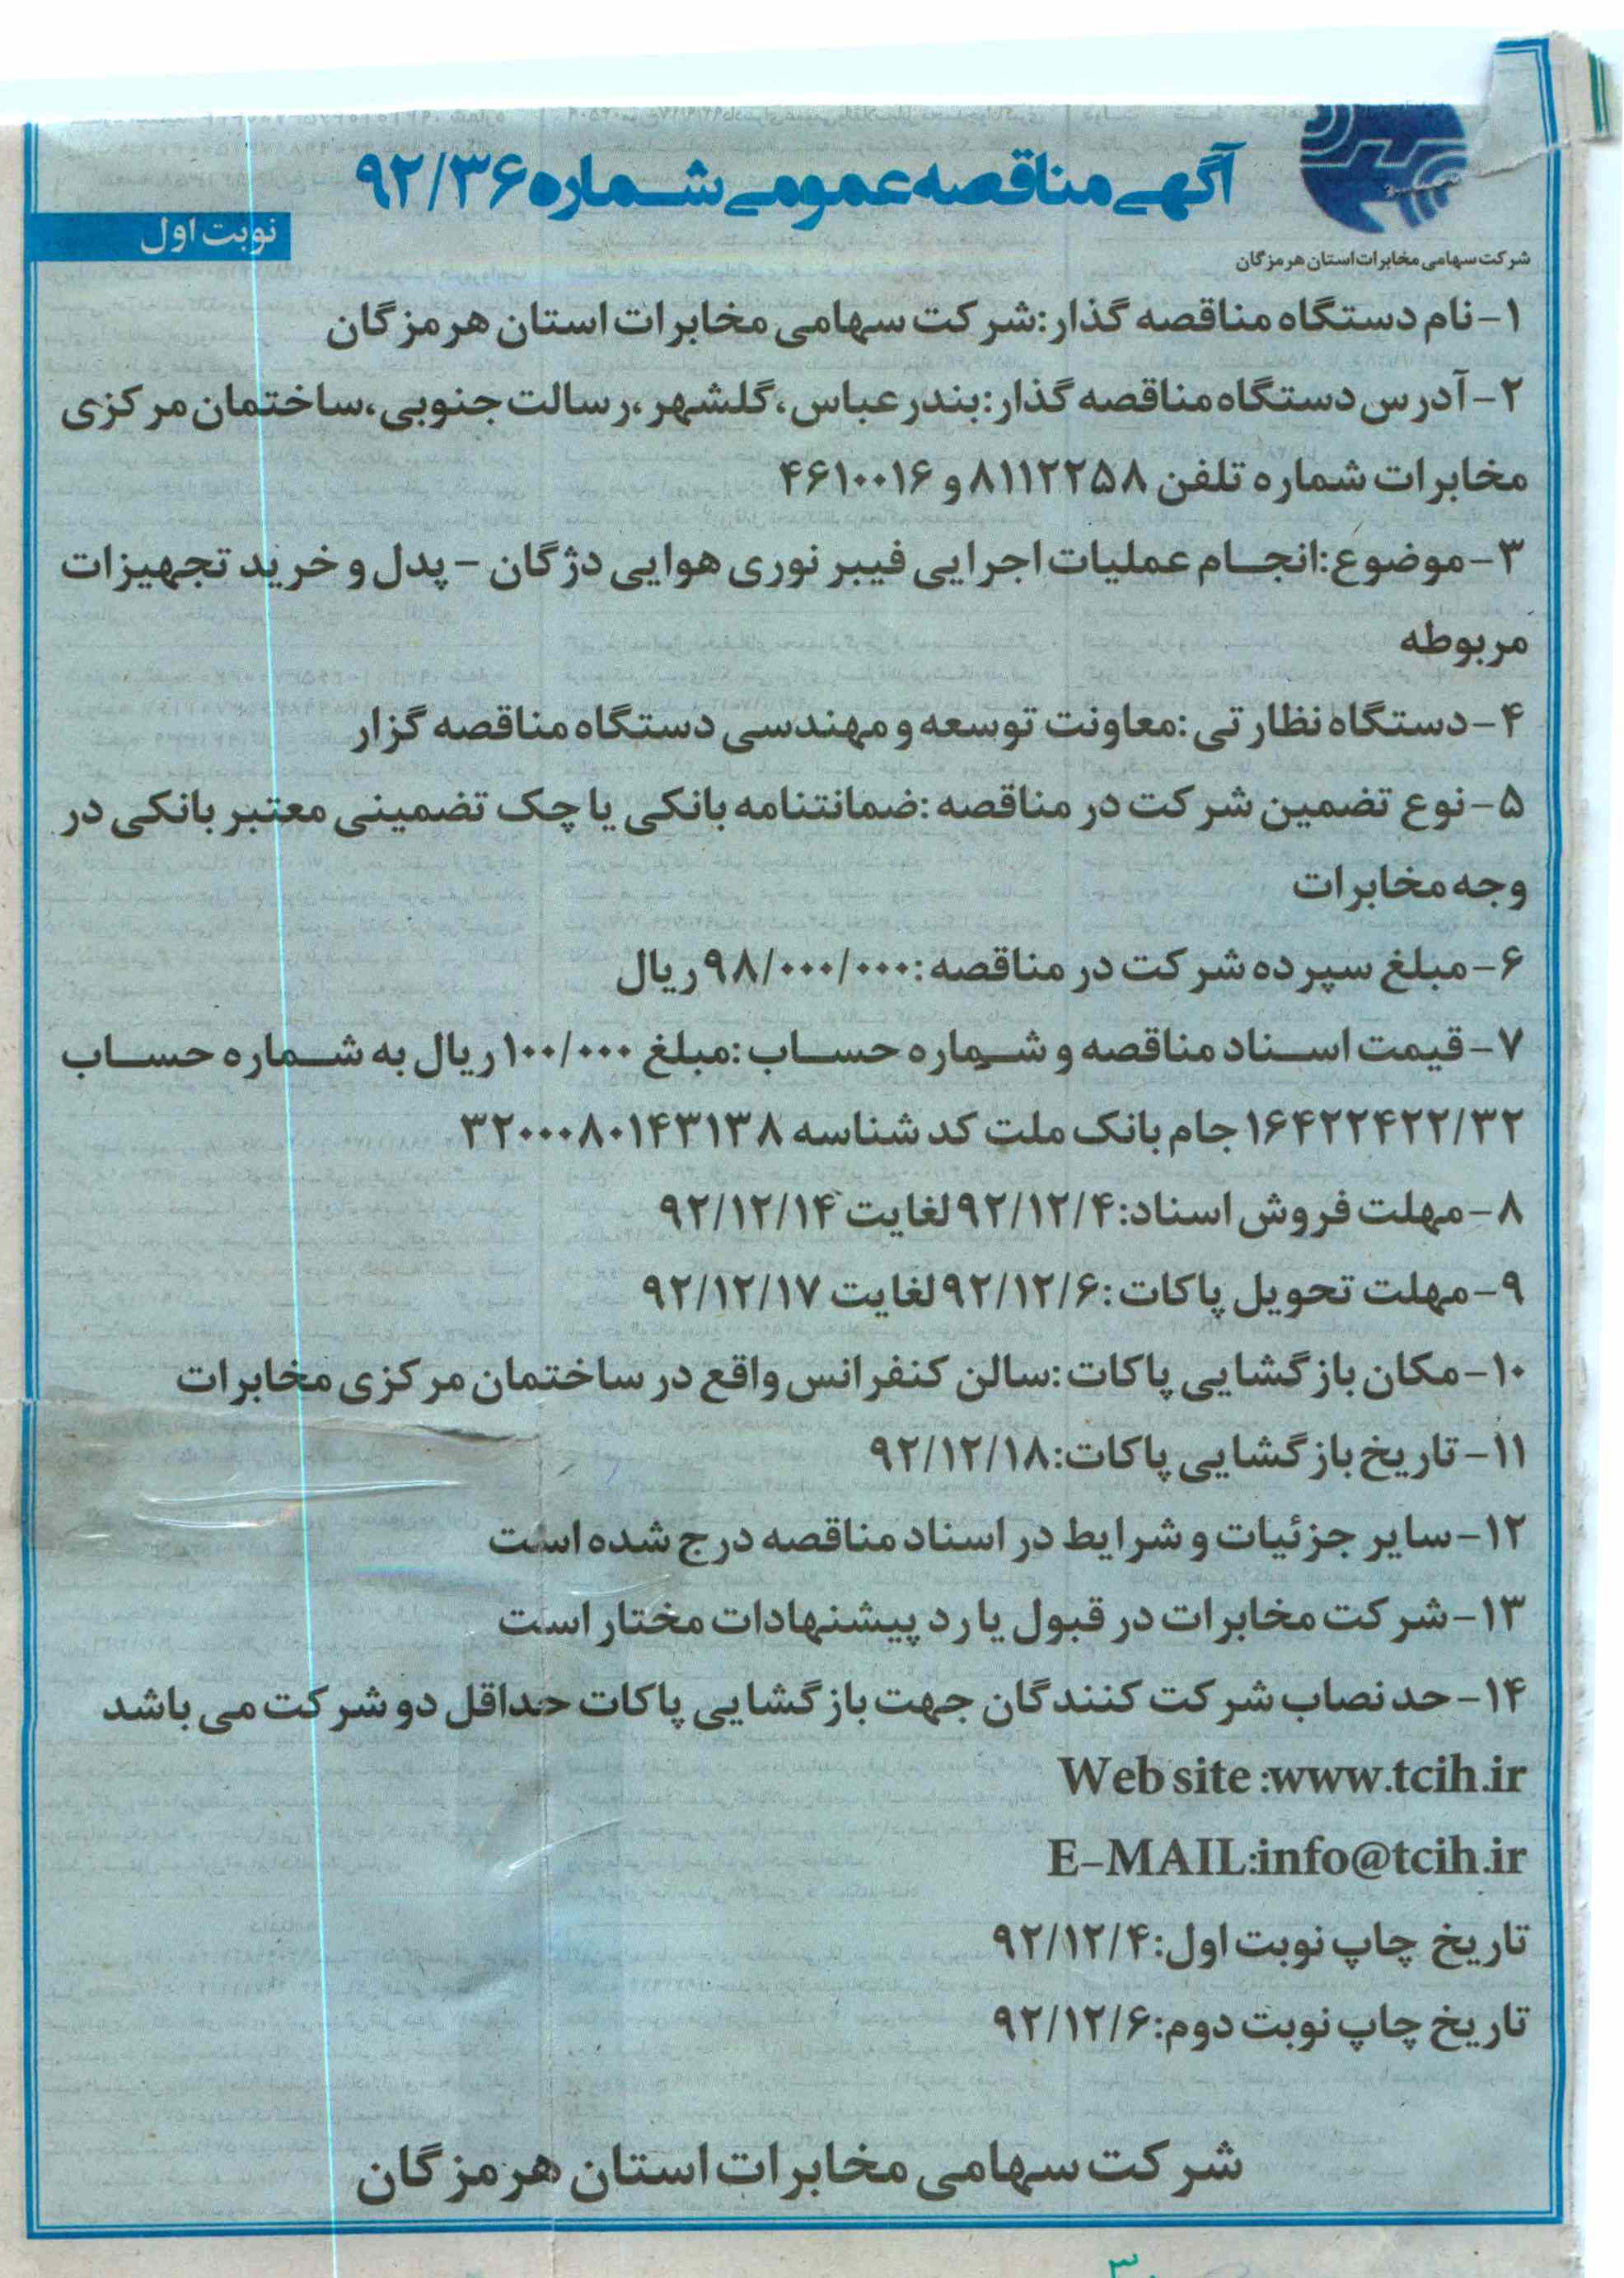 آگهی مناقصه عمومی شماره ۹۲/۳۶
نوبت اول
شرکت سهامی مخابرات استان هرمزگان
۱- نام دستگاه مناقصه گذار: شرکت سهامی مخابرات استان هرمزگان
۲- آدرس دستگاه مناقصه گذار: بندرعباس، گلشهر، رسالت جنوبی، ساختمان مرکزی
مخابرات شماره تلفن ۸۱۱۲۲۵۸ و ۴۶۱۰۰۱۶
۳- موضوع: انجام عملیات اجرایی فیبر نوری هوایی دژگان - پدل و خرید تجهیزات
مربوطه
۴- دستگاه نظارتی: معاونت توسعه و مهندسی دستگاه مناقصه گزار
۵- نوع تضمین شرکت در مناقصه: ضمانتنامه بانکی یا چک تضمینی معتبر بانکی در
وجه مخابرات
۶- مبلغ سپرده شرکت در مناقصه: ۹۸/۰۰۰/۰۰۰ ریال
۷- قیمت اسناد مناقصه و شماره حساب: مبلغ ۱۰۰/۰۰۰ ریال به شماره حساب
۱۶۴۲۲۴۲۲/۳۲ جام بانک ملت کد شناسه ۳۲۰۰۰۸۰۱۴۳۱۳۸
۸- مهلت فروش اسناد: ۹۲/۱۲/۴ لغایت ۹۲/۱۲/۱۴
۹- مهلت تحویل پاکات: ۹۲/۱۲/۶ لغایت ۹۲/۱۲/۱۷
۱۰- مکان بازگشایی پاکات: سالن کنفرانس واقع در ساختمان مرکزی مخابرات
۱۱- تاریخ بازگشایی پاکات: ۹۲/۱۲/۱۸
۱۲- سایر جزئیات و شرایط در اسناد مناقصه درج شده است
۱۳- شرکت مخابرات در قبول یا رد پیشنهادات مختار است
۱۴- حد نصاب شرکت کنندگان جهت بازگشایی پاکات حداقل دو شرکت می باشد
Web site :www.tcih.ir
E-MAIL:info@tcih.ir
تاریخ چاپ نوبت اول: ۹۲/۱۲/۴
تاریخ چاپ نوبت دوم: ۹۲/۱۲/۶
شرکت سهامی مخابرات استان هرمزگان